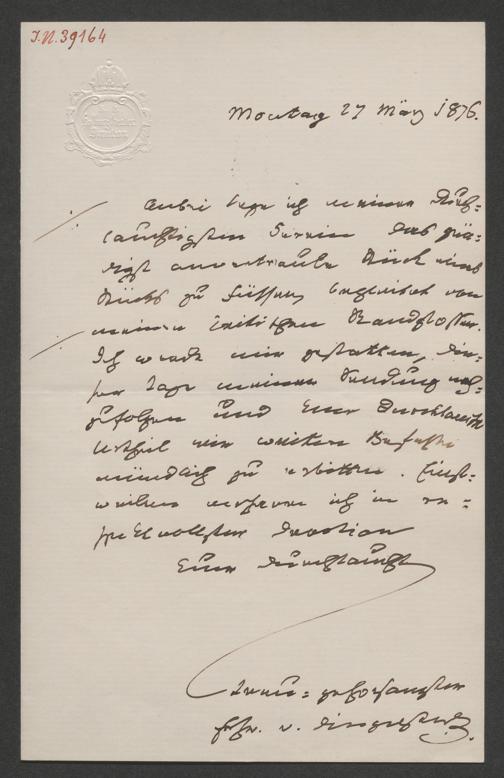 I.N. 39164
Montag 27 März 1876.
Anbei lege ich meiner Durch=
lauchtigsten Herrin das gnä=
digst anvertraute Stück eines
Stücks zu Füssen, begleitet von
meinen kritischen Randglossen.
Ich werde mir gestatten, die=
ser Tage meiner Sendung nach=
zufolgen und Euer Durchlaucht
Urtheil mir
mündlich zu erbitten. Einst=
weilen verharre ich in re=
spektvollster Devotion
Euer Durchlaucht
treu=gehorsamster
Frhr. v. Dingelstedt.